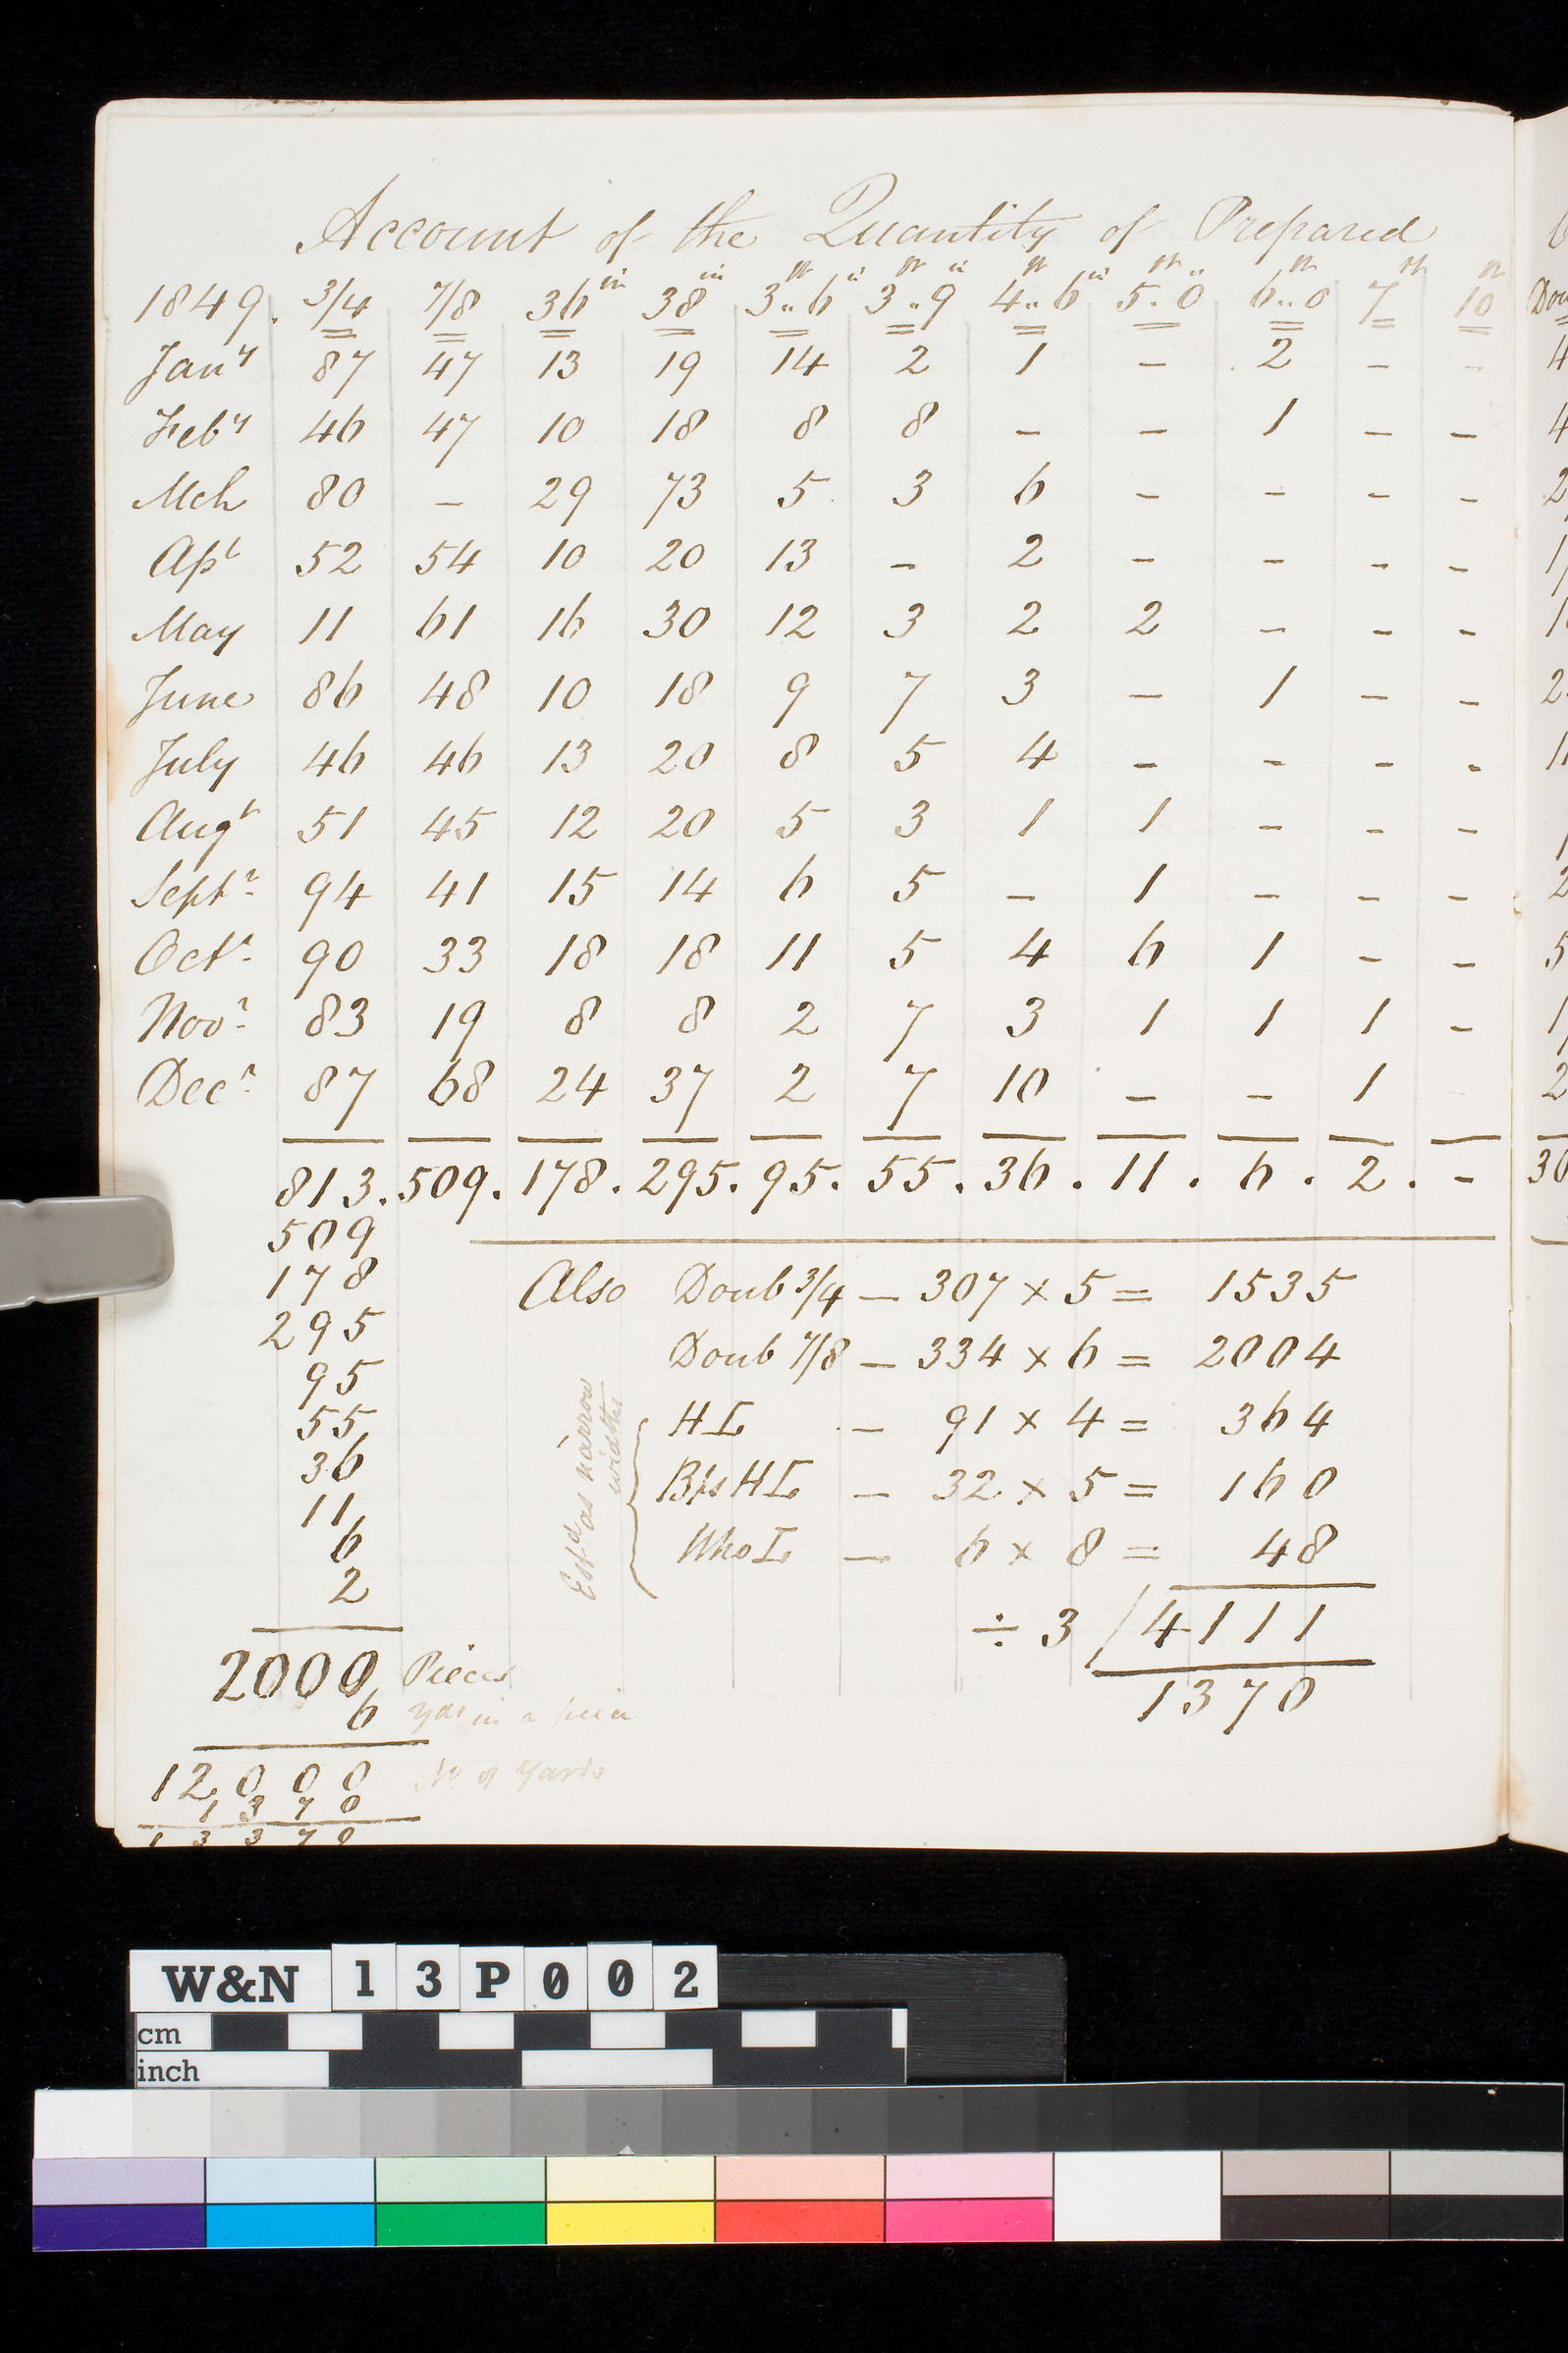 Account of the Quantity of Prepared
1849. 3/4 7/8 36in 38in 3ft..6in 3ft..9in 4ft..6in 5ft..0 6ft..0 7ft 10ft
Jany 87 47 13 19 14 2 1 – 2 – – 4
Feby 46 47 10 18 8 8 – – 1 – – 4
Mch 80 – 29 73 5 3 6 – – – – 2
Apl 52 54 10 20 13 – 2 – – – – 1
May 11 61 16 30 12 3 2 2 – – – 1
June 86 48 10 18 9 7 3 – 1 – – 2
July 46 46 13 20 8 5 4 – – – – 1
Augt 51 45 12 20 5 3 1 1 – – – 1
Septr 94 41 15 14 6 5 – 1 – – – 2
Octr 90 33 18 18 11 5 4 6 1 – – 5
Novr 83 19 8 8 2 7 3 1 1 1 – 1
Decr 87 68 24 37 2 7 10 – – 1 2
813. 509. 178. 295. 95. 55. 36. 11. 6. 2. – 30
509
178
295
95
55
36
11
6
2
2000 Pieces
6 yds in a piece
12,000 No of Yards
1370
13370
Also Doub 3/4 – 307 × 5 = 1535
Doub 7/8 – 334 × 6 = 2004
HL – 91 × 4 = 364
Bis HL – 32 × 5 = 160
Who L – 6 × 8 = 48
Estd as narrow
widths
÷ 3 / 4111
1370
W&N 13P002
cm
inch